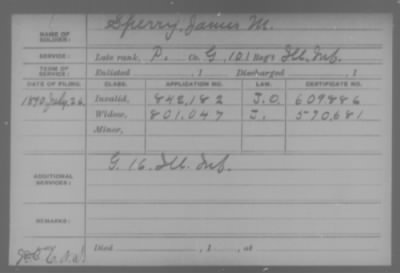 NAME OF SOLDIER: Sperry, James M.
SERVICE: Late rank, P. Co. G, 101 Reg't Ill. Inf.
TERM OF SERVICE: Enlisted , 1 Discharged , 1
DATE OF FILING. CLASS. APPLICATION NO. LAW. CERTIFICATE NO.
1890 July 26 Invalid, 842,182 J.O. 609.886
Widow, 801,047 J. 570,681
Minor,
ADDITIONAL SERVICES: G. 16. Ill. Inf.
REMARKS:
Died , 1 , at